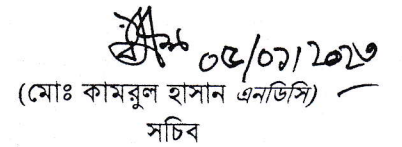 ০৫/০১/২০২৩
(মোঃ কামরুল হাসান এনডিসি)
সচিব